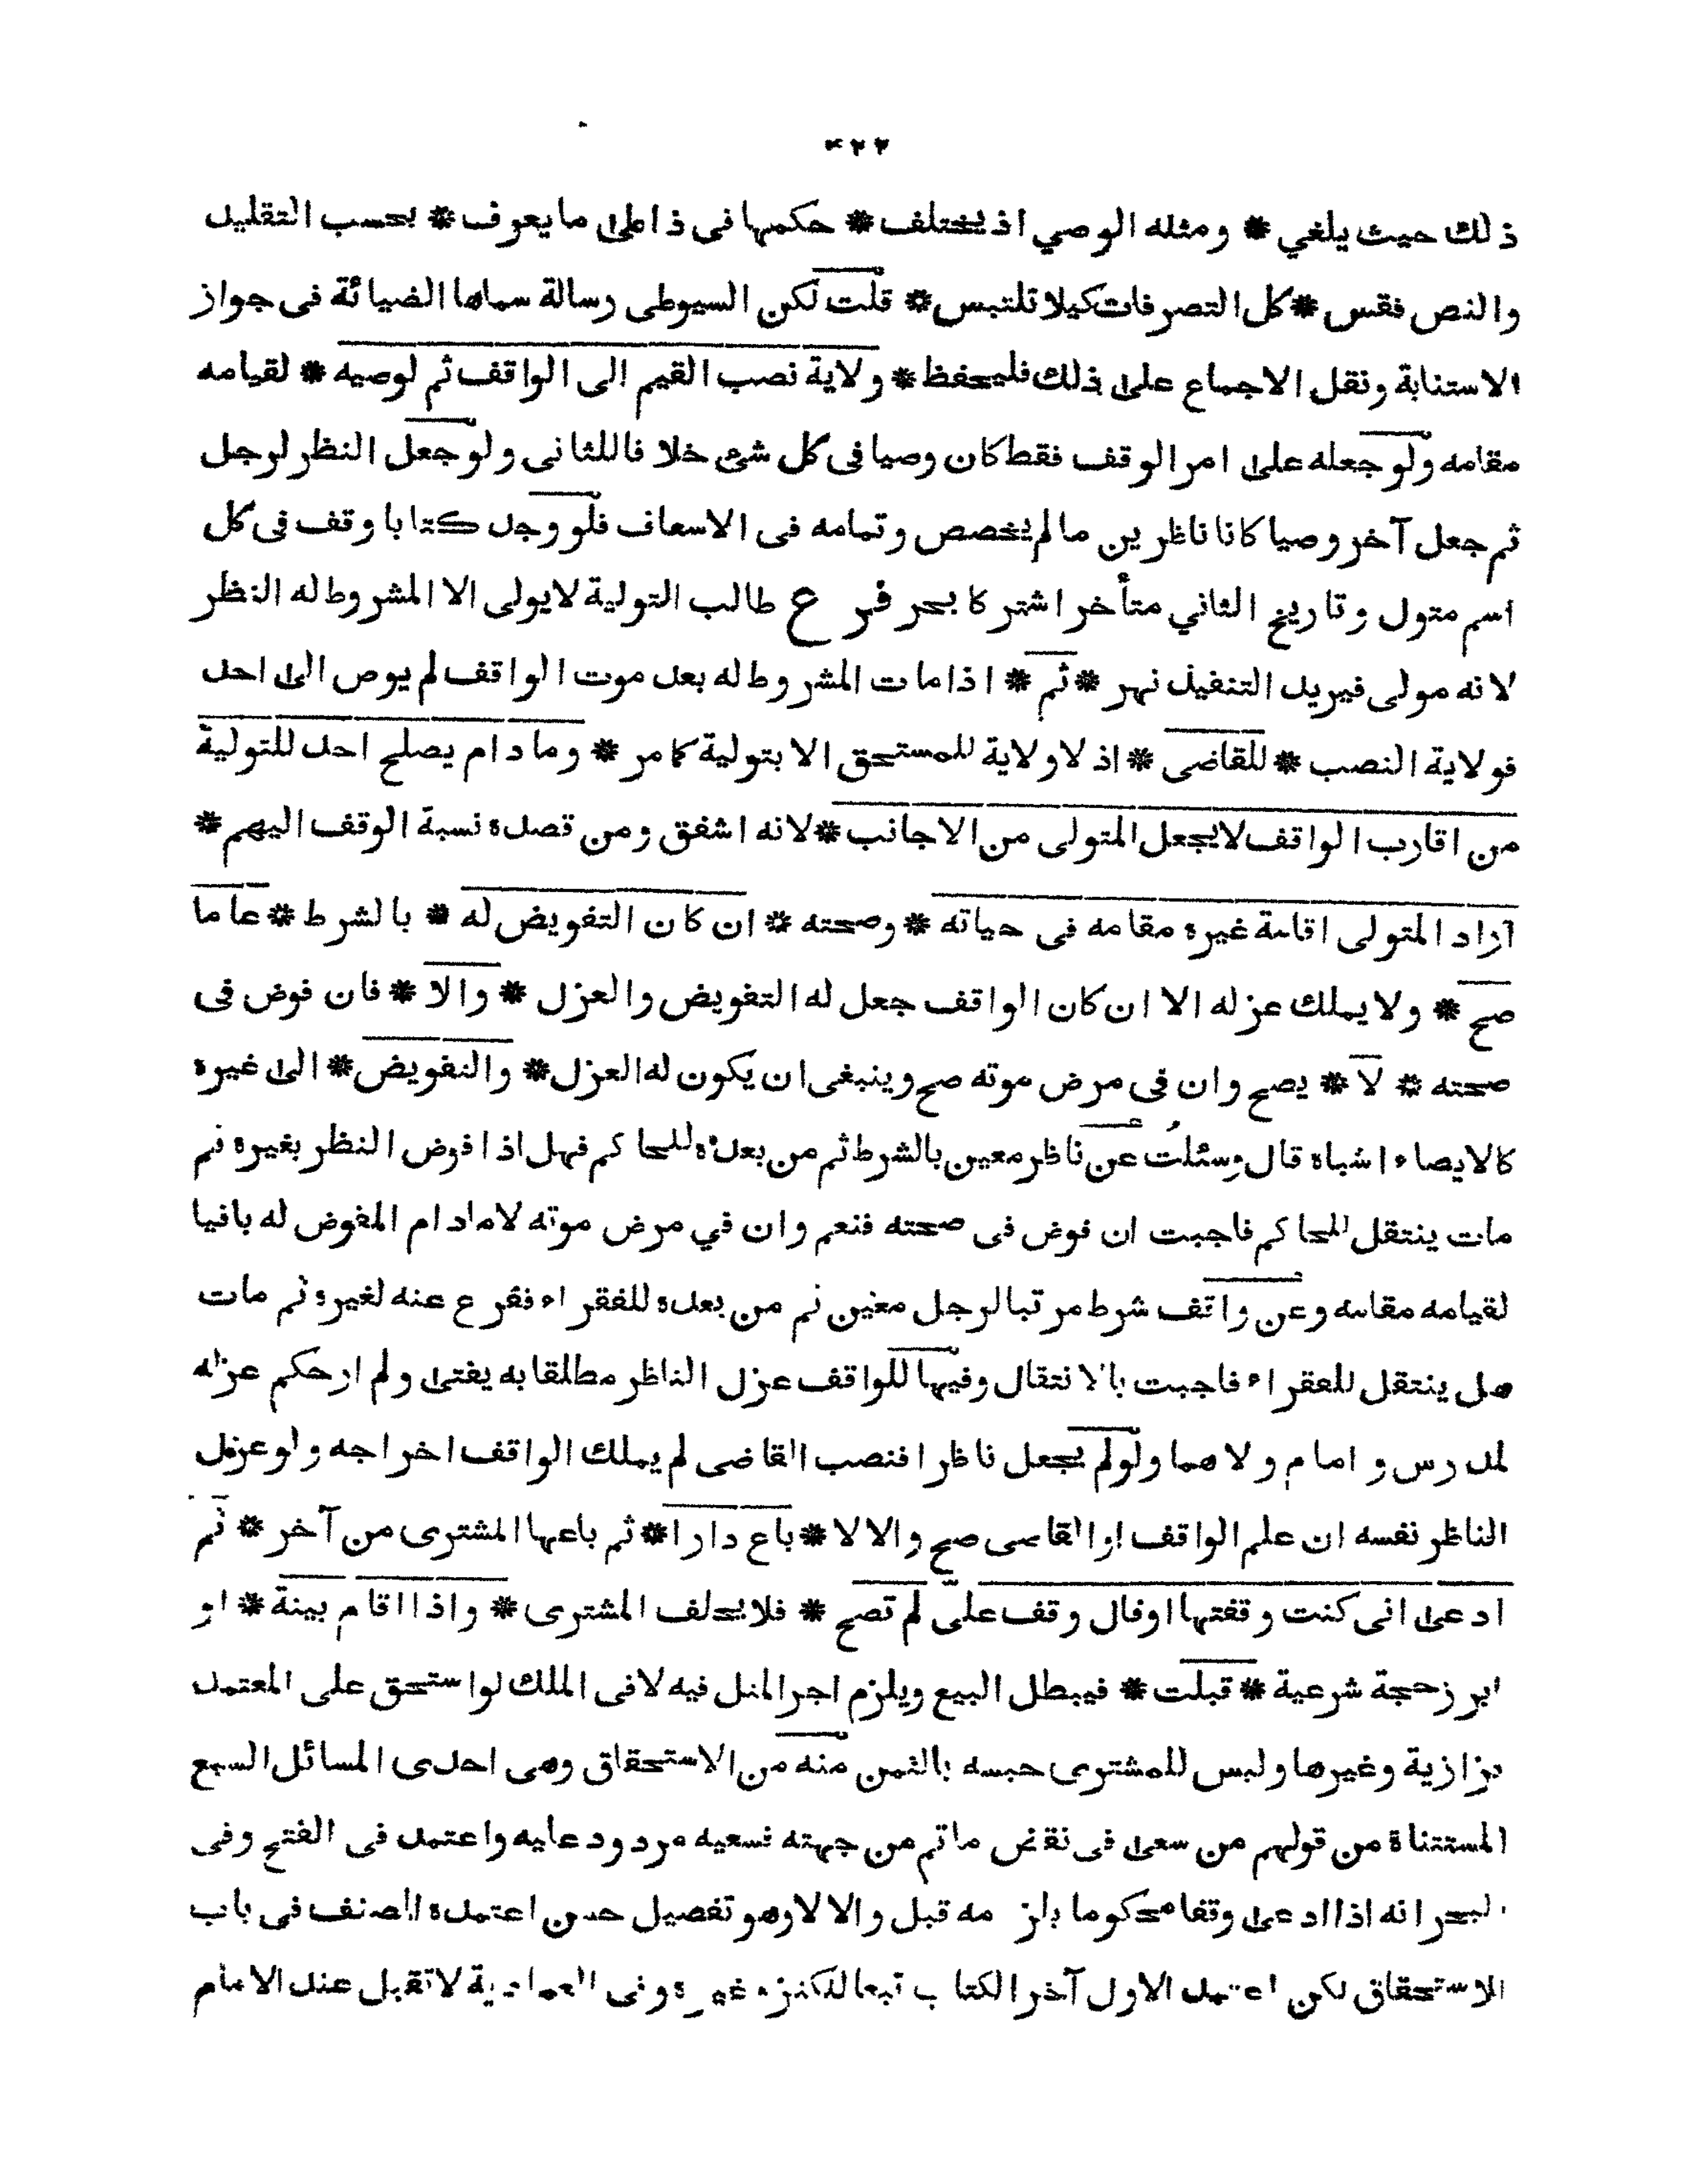 ٤٢٢
ذلك حيث يلغي * ومثله الوصي اذ يختلف * حكمها فى ذا على ما يعرف * بحسب التقليد
والنص فقس * كل التصرفات كيلا تلتبس * قلت لكن السيوطى رسالة سماها الضيائة فى جواز
الاستنابة ونقل الاجماع على ذلك فليحفظ * ولاية نصب القيم الى الواقف ثم لوصيه * لقيامه
مقامه ولو جعله على امر الوقف فقط كان وصيا فى كل شئ خلا فا للثانى ولو جعل النظر لرجل
ثم جعل آخر وصيا كانا ناظرين ما لم يخصص وتمامه فى الاسعاف فلو وجد كتابا وقف فى كل
اسم متول وتاريخ الثاني متأخر اشتركا بحر فرع طالب التولية لا يولى الا المشروط له النظر
لانه مولى فيريد التنفيذ نهر * ثم * اذا مات المشروط له بعد موت الواقف لم يوص الى احد
فولاية النصب * للقاضى * اذ لا ولاية للمستحق الا بتولية كما مر * وما دام يصلح احد للتولية
من اقارب الواقف لا يجعل المتولى من الاجانب * لانه اشفق ومن قصده نسبة الوقف اليهم *
آراد المتولى اقامة غيره مقامه فى حياته * وصحته * ان كان التفويض له * بالشرط * عاما
صح * ولا يملك عزله الا ان كان الواقف جعل له التفويض والعزل * والا * فان فوض فى
صحته * لا * يصح وان فى مرض موته صح وينبغى ان يكون له العزل * والتفويض * الى غيره
كالايصاء اشباه قال وسئلت عن ناظر معين بالشرط ثم من بعده للحاكم فهل اذا فوض النظر بغيره ثم
مات ينتقل للحاكم فاجبت ان فوض فى صحته فنعم وان في مرض موته لا مادام المفوض له باقيا
لقيامه مقامه وعن واقف شرط مرتبا لرجل معين ثم من بعده للفقراء ففرع عنه لغيره ثم مات
هل ينتقل للفقراء فاجبت بالانتقال وفيها للواقف عزل الناظر مطلقا به يفتى ولم ار حكم عزله
لمدرس وامام ولا هما ولو لم يجعل ناظرا فنصب القاضى لم يملك الواقف اخراجه ولو عزل
الناظر نفسه ان علم الواقف او القاضى صح والا لا * باع دارا * ثم باعها المشترى من آخر * ثم
ادعى انى كنت وقفتها او قال وقف على لم تصح * فلا يحلف المشترى * واذا اقام بينة * او
ابرز حجة شرعية * قبلت * فيبطل البيع ويلزم اجر المثل فيه لا فى الملك لو استحق على المعتمد
بزازية وغيرها وليس للمشترى حبسه بالثمن منه من الاستحقاق وهى احدى المسائل السبع
المستثناة من قولهم من سعى فى نقض ما تم من جهته فسعيه مردود عليه واعتمد فى الفتح وفى
البحر انه اذا ادعى وقفا محكوما بلزومه قبل والا لا وهو تفصيل حسن اعتمده المصنف فى باب
الاستحقاق لكن اعتمد الاول آخر الكتاب تبعا للكنز وغيره وفى العمادية لا تقبل عند الامام